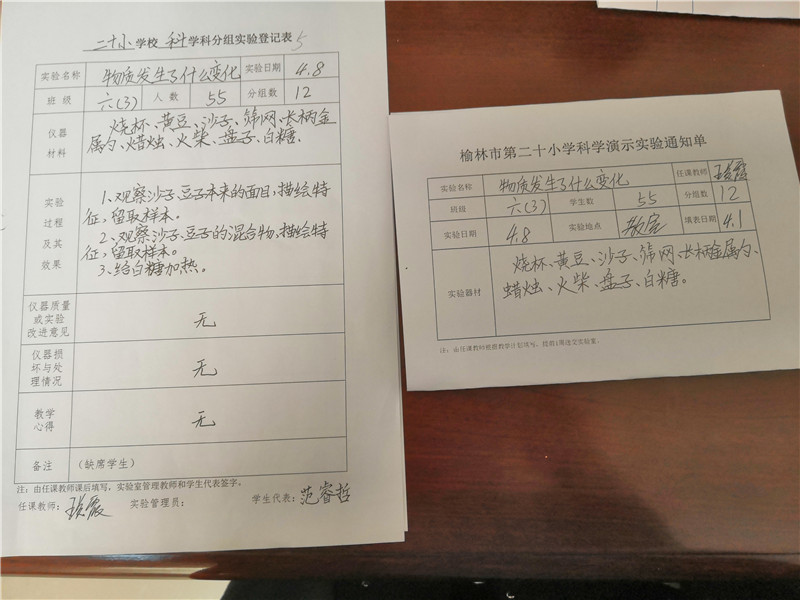 二十小学校 科学科分组实验登记表 5
实验名称 物质发生了什么变化 实验日期 4.8
班级 六(3) 人数 55 分组数 12
仪器材料 烧杯、黄豆、沙子、筛网、长柄金
属勺、蜡烛、火柴、盘子、白糖.
实验过程及其效果 1、观察沙子、豆子本来的面目,描绘特
征,留取样本。
2、观察沙子、豆子的混合物,描绘特
征,留取样本。
3、给白糖加热。
仪器质量或实验改进意见 无
仪器损坏与处理情况 无
教学心得 无
备注 (缺席学生)
注:由任课教师课后填写,实验室管理教师和学生代表签字。
任课教师: 实验管理员: 学生代表:范睿哲
榆林市第二十小学科学演示实验通知单
实验名称 物质发生了什么变化 任课教师
班级 六(3) 学生数 55 分组数 12
实验日期 4.8 实验地点 教室 填表日期 4.1
实验器材 烧杯、黄豆、沙子、筛网、长柄金属勺、
蜡烛、火柴、盘子、白糖。
注:由任课教师根据教学计划填写,提前1周送交实验室。